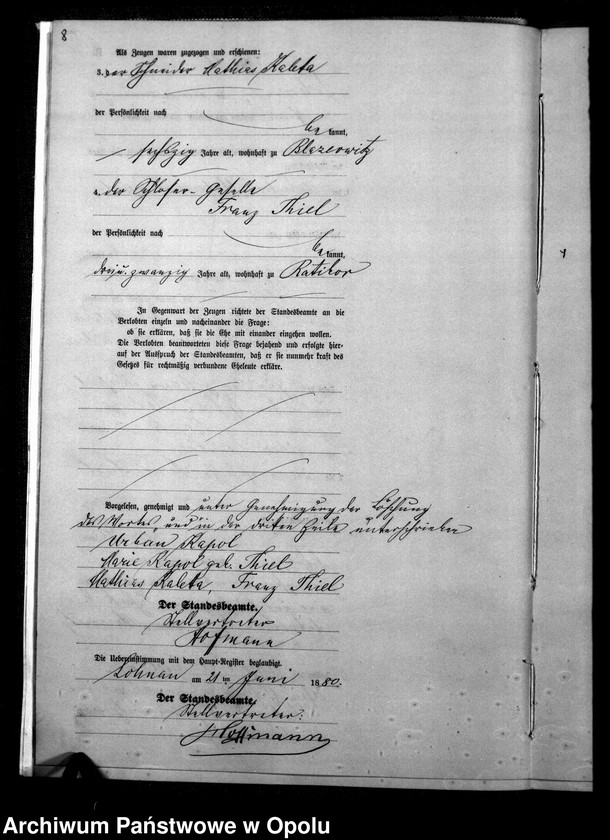 8
Als Zeugen waren zugezogen und erschienen:
3. der Schneider Mathias Kaleta
der Persönlichkeit nach
be kannt,
sechszig Jahre alt, wohnhaft zu Blazeowitz
4. der Schloser-Geselle
Franz Thiel
der Persönlichkeit nach
be kannt,
dreiu. zwanzig Jahre alt, wohnhaft zu Ratibor
In Gegenwart der Zeugen richtete der Standesbeamte an die
Verlobten einzeln und nacheinander die Frage:
ob sie erklären, daß sie die Ehe mit einander eingehen wollen.
Die Verlobten beantworteten diese Frage bejahend und erfolgte hier-
auf der Ausspruch des Standesbeamten, daß er sie nunmehr kraft des
Gesetzes für rechtmäßig verbundene Eheleute erkläre.
Vorgelesen, genehmigt und unter Genehmigung der Löschung
des Wortes „und in der dritten Zeile unterschrieben
Urban Kapol
Marie Kapol geb. Thiel
Mathias Kaleta, Franz Thiel
Der Standesbeamte.
Stellvertreter
Hofmann
Die Uebereinstimmung mit dem Haupt-Register beglaubigt.
Lohnau am 21ten Juni 1880.
Der Standesbeamte.
Stellvertreter:
Hoffmann
Archiwum Państwowe w Opolu